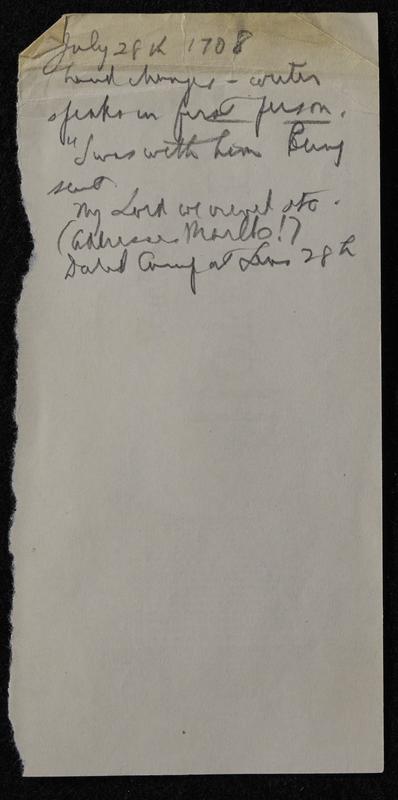 July 28th 1708
hand changes - writer
speaks in first person.
"I was with him Being
sent
My Lord we viewed
(addresses Marlb!)
Dated Camp at 28th